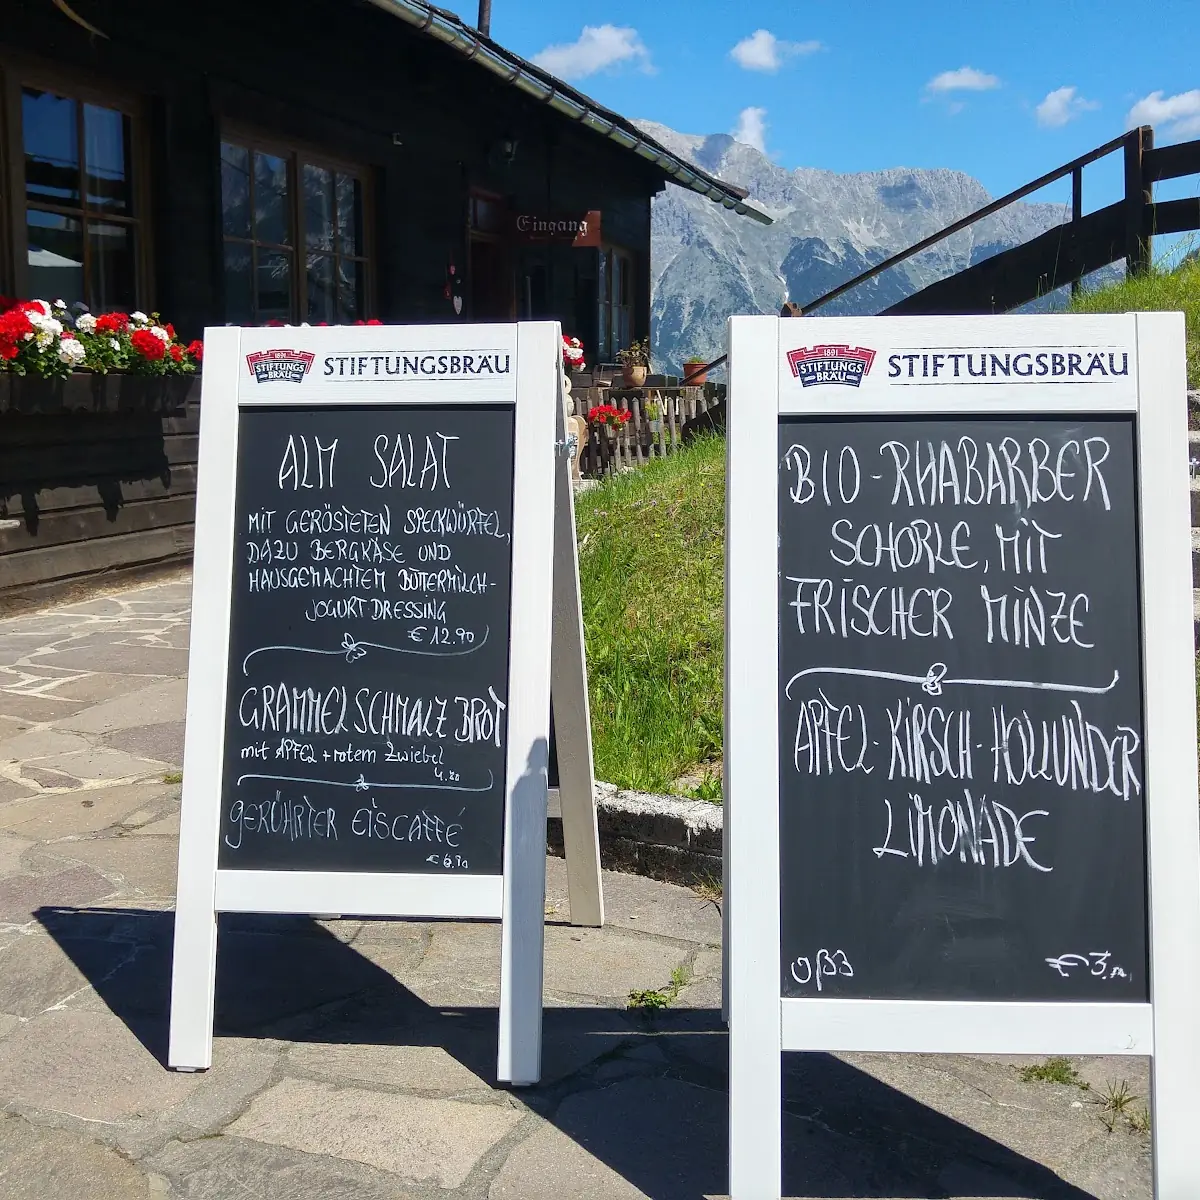 Eingang
1891
STIFTUNGS
BRÄU
STIFTUNGSBRÄU
ALM SALAT
MIT GERÖSTETEN SPECKWÜRFEL,
DAZU BERGKÄSE UND
HAUSGEMACHTEM BUTTERMILCH-
JOGURT-DRESSING
€ 12.90
GRAMMELSCHMALZ BROT
mit APFEL + rotem Zwiebel
4.80
GERÜHRTER EISCAFFÉ
€ 6,90
1891
STIFTUNGS
BRÄU
STIFTUNGSBRÄU
BIO-RHABARBER
SCHORLE, MIT
FRISCHER MINZE
APFEL-KIRSCH-HOLLUNDER
LIMONADE
€ 3.